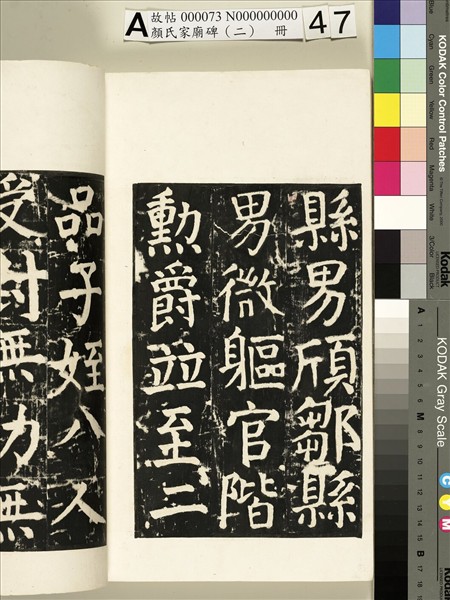 A 故帖 000073 N000000000 47
顏氏家廟碑（二） 冊
縣男頎鄒縣
男微軀官階
勳爵並至三
品子姪八人
受封無功無
KODAK Color Control Patches
Blue
Cyan
Green
Yellow
Red
Magenta
White
3/Color
Black
Kodak
KODAK Gray Scale
C Y M
A 1 2 3 4 5 6 M 8 9 10 11 12 13 14 15 B 17 18
Kodak